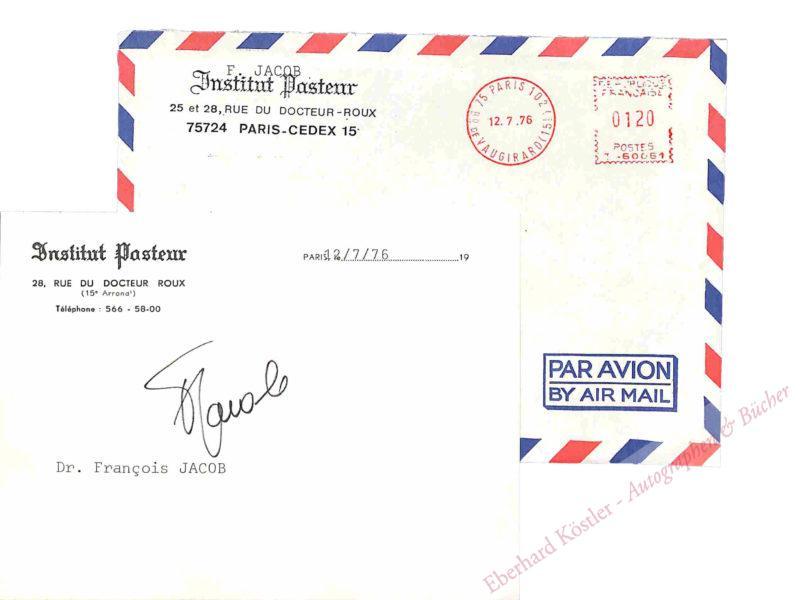 F. JACOB
Institut Pasteur
25 et 28, RUE DU DOCTEUR-ROUX
75724 PARIS-CEDEX 15
75 PARIS 102
12.7.76
R. DE VAUGIRARD (15E)
REPUBLIQUE
FRANCAISE
0120
POSTES
Institut Pasteur
28, RUE DU DOCTEUR ROUX
(15e Arrondt)
Téléphone : 566 - 58-00
PARIS, le 12/7/76 19
Dr. François JACOB
PAR AVION
BY AIR MAIL
Eberhard Köstler - Autographen & Bücher